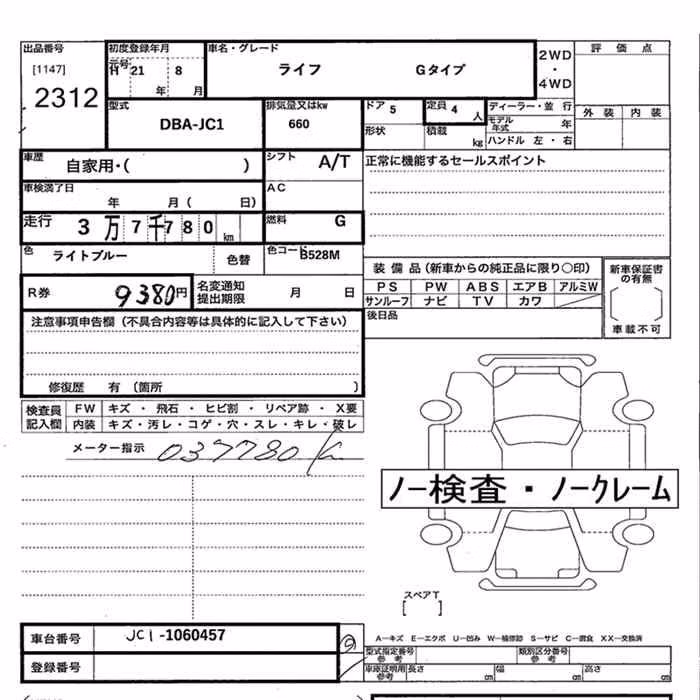 出品番号
[1147]
2312
初度登録年月
元号
H 21 8
年 月
車名・グレード
ライフ Gタイプ
2WD
・
4WD
評 価 点
外 装 内 装
型式
DBA-JC1
排気量又はkw
660
ドア 5
定員 4 人
形状
積載 kg
ディーラー・並 行
モデル年式 年
ハンドル 左・右
車歴
自家用・( )
シフト A/T
正常に機能するセールスポイント
車検満了日
年 月( 日)
AC
走行 3万7千780 km
燃料 G
色 ライトブルー 色替
色コード B528M
装 備 品(新車からの純正品に限り○印)
PS PW ABS エアB アルミW
サンルーフ ナビ TV カワ
後日品
新車保証書の有無
車載不可
R券 9380円
名変通知提出期限 月 日
注意事項申告欄(不具合内容等は具体的に記入して下さい)
修復歴 有(箇所 )
検査員記入欄
FW キズ・飛石・ヒビ割・リペア跡・X要
内装 キズ・汚レ・コゲ・穴・スレ・キレ・破レ
メーター指示 037780
ノー検査・ノークレーム
スペアT
[ ]
A−キズ E−エクボ U−凹み W−補修跡 S−サビ C−腐食 XX−交換済
車台番号 JC1-1060457
登録番号
型式指定番号 参考
類別区分番号 参考
車庫証明用 参考 長さ cm 幅 cm 高さ cm